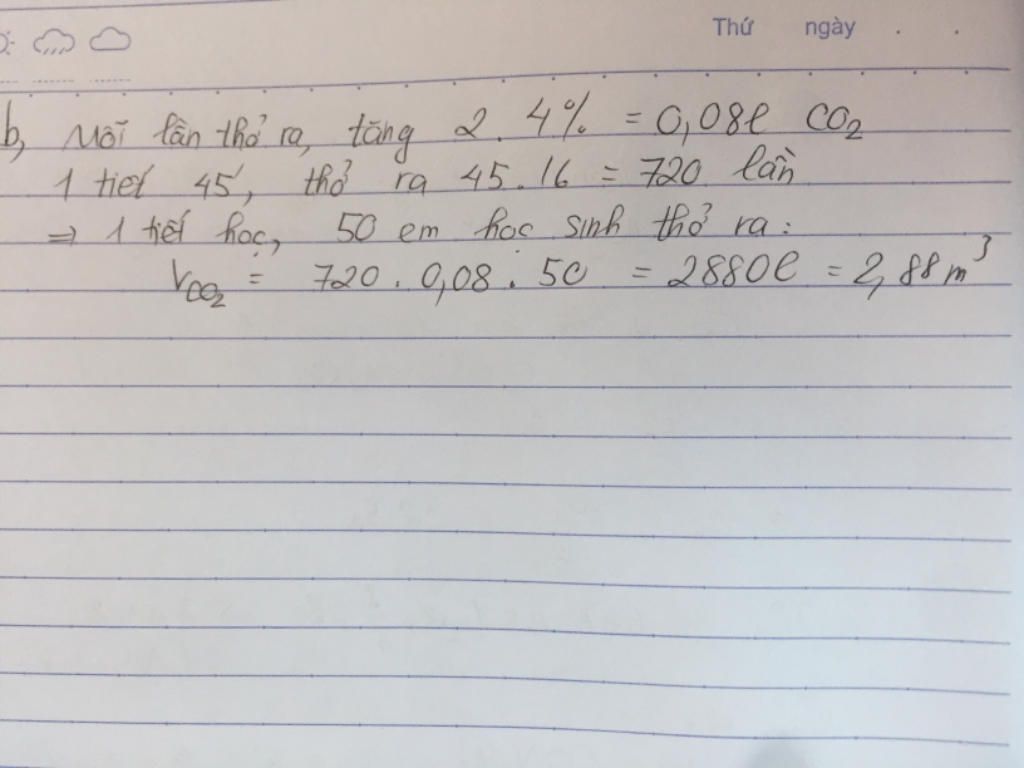 Thứ ngày . .
b, Mỗi lần thở ra, tăng 2 . 4% = 0,08l CO2
1 tiết 45', thở ra 45 . 16 = 720 lần
⇒ 1 tiết học, 50 em học sinh thở ra:
VCO2 = 720 . 0,08 . 50 = 2880l = 2,88m³